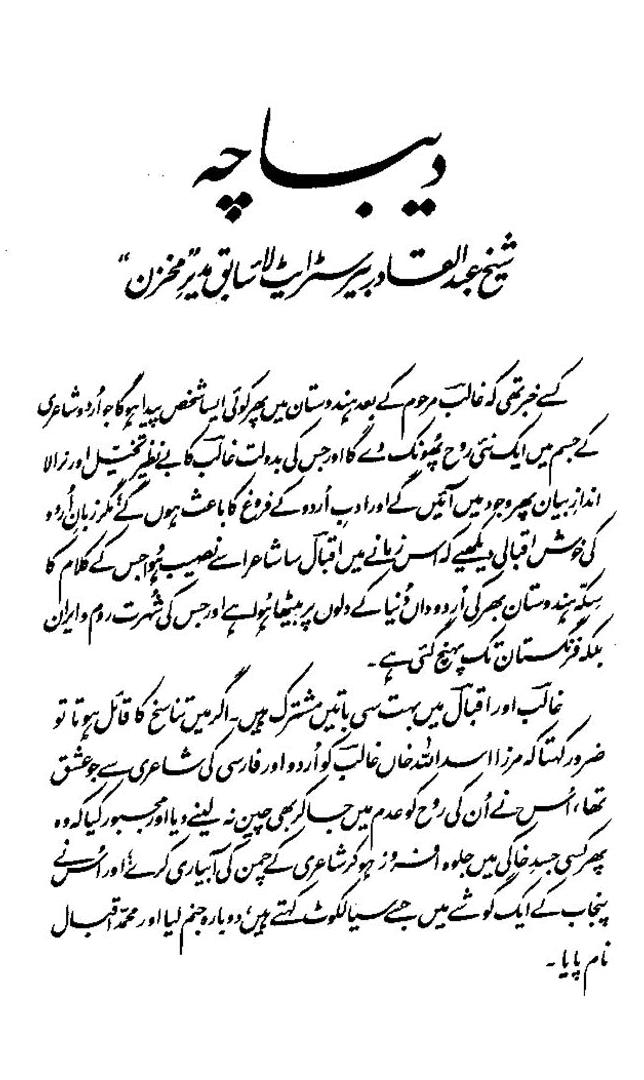 دیباچہ
شیخ عبدالقادر بیرسٹر ایٹ لا، سابق مدیر "مخزن"
کسے خبر تھی کہ غالبؔ مرحوم کے بعد ہندوستان میں پھر کوئی ایسا شخص پیدا ہوگا جو اُردو شاعری
کے جسم میں ایک نئی روح پھونک دے گا اور جس کی بدولت غالبؔ کا بے نظیر تخیّل اور نرالا
اندازِ بیان پھر وجود میں آئیں گے اور ادبِ اُردو کے فروغ کا باعث ہوں گے، مگر زبانِ اُردو
کی خوش اقبالی دیکھیے کہ اس زمانے میں اقبالؔ سا شاعر اسے نصیب ہُوا جس کے کلام کا
سِکّہ ہندوستان بھر کی اُردو داں دُنیا کے دلوں پر بیٹھا ہُوا ہے اور جس کی شُہرت روم و ایران
بلکہ فرنگستان تک پہنچ گئی ہے۔
غالبؔ اور اقبالؔ میں بہت سی باتیں مشترک ہیں۔ اگر میں تناسخ کا قائل ہوتا تو
ضرور کہتا کہ مرزا اسد اللہ خاں غالبؔ کو اُردو اور فارسی کی شاعری سے جو عشق
تھا، اُس نے اُن کی رُوح کو عدم میں جا کر بھی چین نہ لینے دیا اور مجبور کیا کہ وہ
پھر کسی جسدِ خاکی میں جلوہ افروز ہو کر شاعری کے چمن کی آبیاری کرے، اور اُس نے
پنجاب کے ایک گوشے میں جسے سیالکوٹ کہتے ہیں، دوبارہ جنم لیا اور محمّد اقبال
نام پایا۔